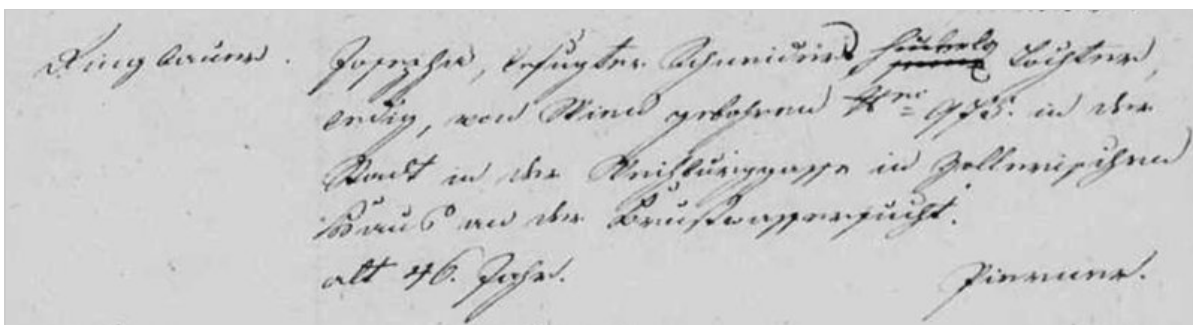 Ringbauer. Josepha, befugter Schneiders Tochter,
ledig, von Wien gebohren Nro 975. in der
Stadt in der Weihburggasse in Zollerischen
Haus an der Brustwassersucht.
alt 46. Jahr.